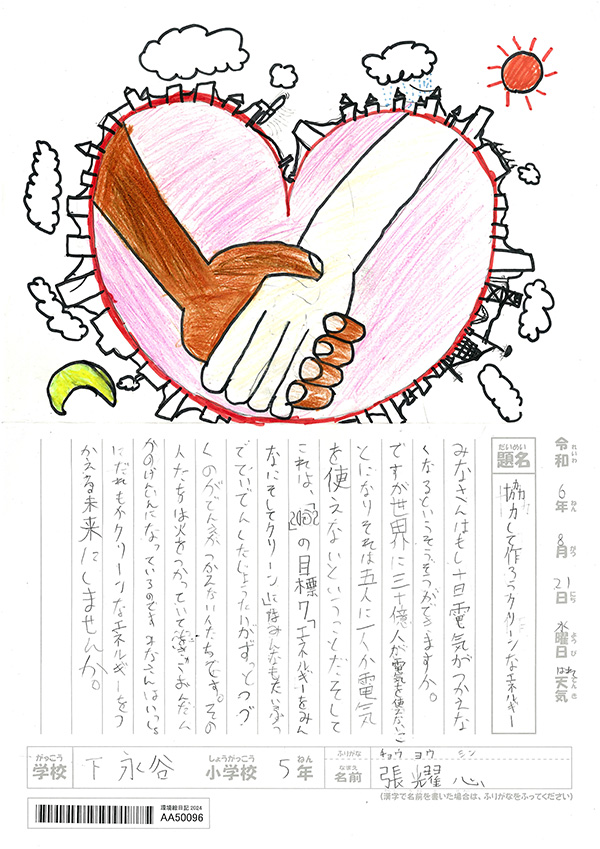 令和6年8月21日水曜日天気はれ
れいわ ねん がつ にち ようび てんき
だいめい
題名 協力して作ろうクリーンなエネルギー
みなさんはもし十日電気がつかえな
くなるというそうぞうができますか。
ですが世界に三十億人が電気を使えないこ
とになりそそは五人に一人が電気
を使えないということだ。そして
これは、の目標7「エネルギーをみん
なにそしてクリーン」にみんなもたいふう
でていでんしたじょうたいがずっとつづ
くのがでんきがつかえない人たちです。その
人たちは火をつかっていておんだん
かのげんいんになっているのです。みなさんはいっしょ
にだれもがクリーンなエネルギーをつ
かえる未来にしませんか。
がっこう しょうがっこう ねん ふりがな チョウ ヨウ シン
学校 下永谷 小学校 5年 なまえ 名前 張耀心
(漢字で名前を書いた場合は、ふりがなをふってください)
環境絵日記 2024
AA50096